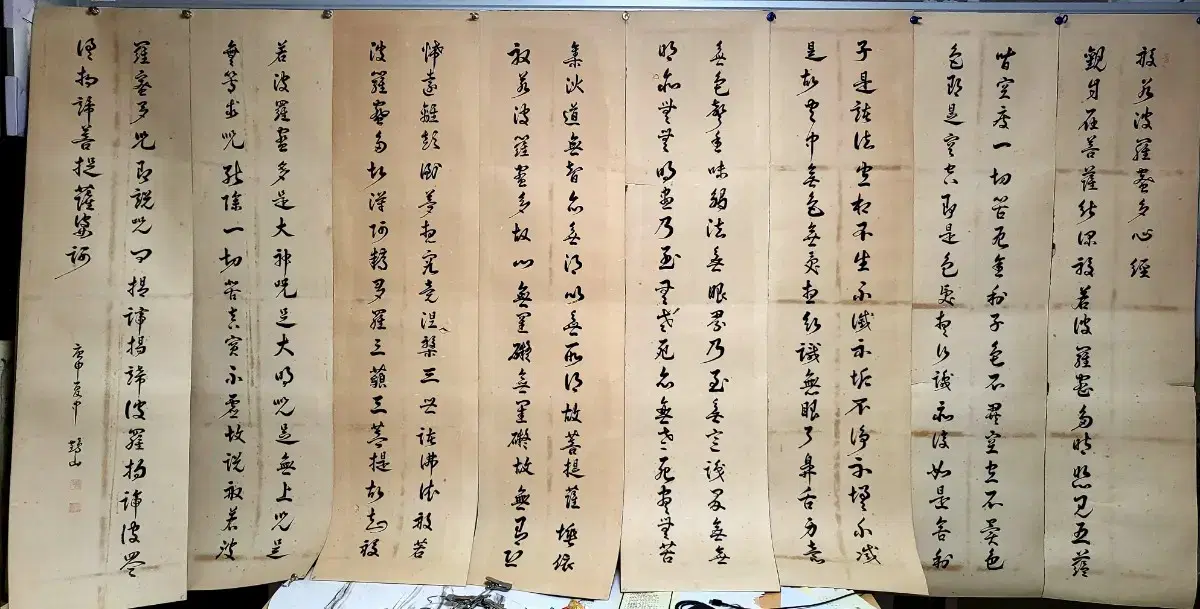 般若波羅蜜多心經
觀自在菩薩行深般若波羅蜜多時照見五蘊
皆空度一切苦厄舍利子色不異空空不異色
色即是空空即是色受想行識亦復如是舍利
子是諸法空相不生不滅不垢不淨不增不減
是故空中無色無受想行識無眼耳鼻舌身意
無色聲香味觸法無眼界乃至無意識界無無
明亦無無明盡乃至無老死亦無老死盡無苦
集滅道無智亦無得以無所得故菩提薩埵依
般若波羅蜜多故心無罣礙無罣礙故無有恐
怖遠離顛倒夢想究竟涅槃三世諸佛依般若
波羅蜜多故得阿耨多羅三藐三菩提故知般
若波羅蜜多是大神咒是大明咒是無上咒是
無等等咒能除一切苦真實不虛故說般若波
羅蜜多咒即說咒曰揭諦揭諦波羅揭諦波羅
僧揭諦菩提薩婆訶
庚申夏中